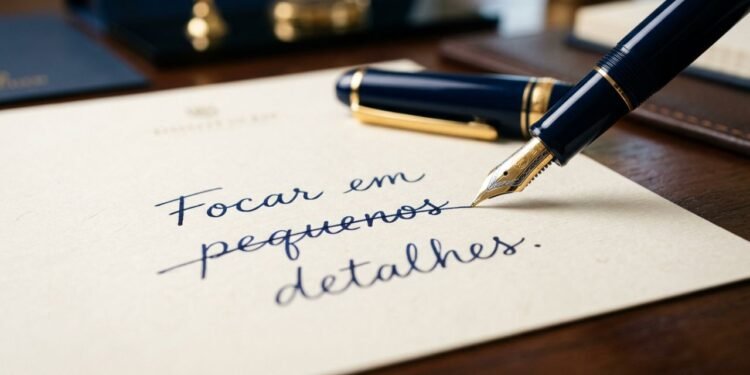 Focar em
pequenos
detalhes.